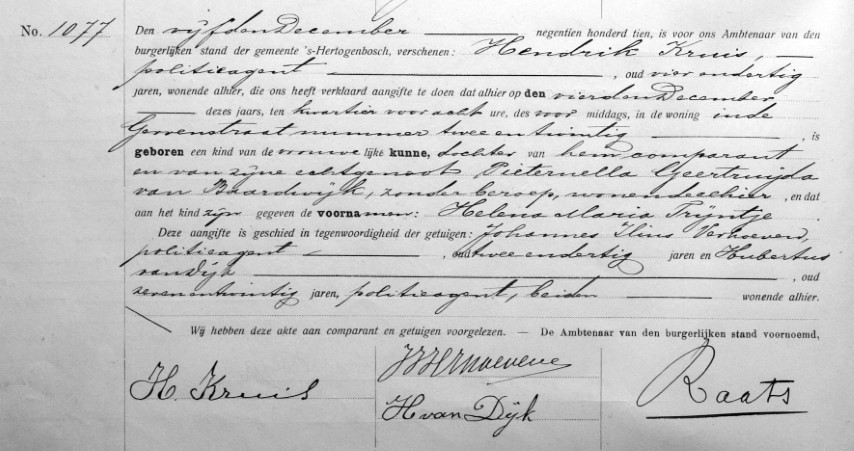 No. 1077
Den vijfden December negentien honderd tien, is voor ons Ambtenaar van den
burgerlijken stand der gemeente 's-Hertogenbosch, verschenen: Hendrik Kruis,
politieagent, oud vier en dertig
jaren, wonende alhier, die ons heeft verklaard aangifte te doen dat alhier op den vierden December
dezes jaars, ten kwartier voor acht ure, des voor middags, in de woning in de
straat nummer twee en twintig, is
geboren een kind van de vrouwelijke kunne, dochter van hem comparant
en van zijne echtgenoot Pieternella Geertruijda
van Baardwijk, zonder beroep, wonende alhier, en dat
aan het kind zijn gegeven de voornamen: Helena Maria Trijntje.
Deze aangifte is geschied in tegenwoordigheid der getuigen: Johannes Verhoeven,
politieagent, oud twee en dertig jaren en Hubertus
van Dijk, oud
zeven en twintig jaren, politieagent, beiden wonende alhier.
Wij hebben deze akte aan comparant en getuigen voorgelezen. — De Ambtenaar van den burgerlijken stand voornoemd,
H. Kruis
H van Dijk
Raats